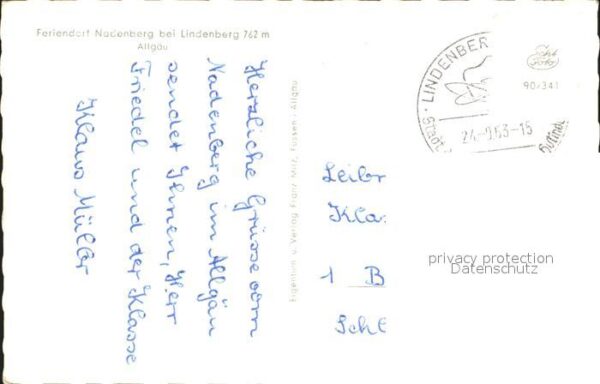 Feriendorf Nadenberg bei Lindenberg 762 m
Allgäu
Herzliche Grüsse vom
Nadenberg im Allgäu
sendet Ihnen, Herr
Friedel und der Klasse
Klaus Müller
Eigentum u. Verlag Franz Milz, Füssen - Allgäu
LINDENBER
Stadt
24.-9.63-15
90/341
1 B
privacy protection
Datenschutz